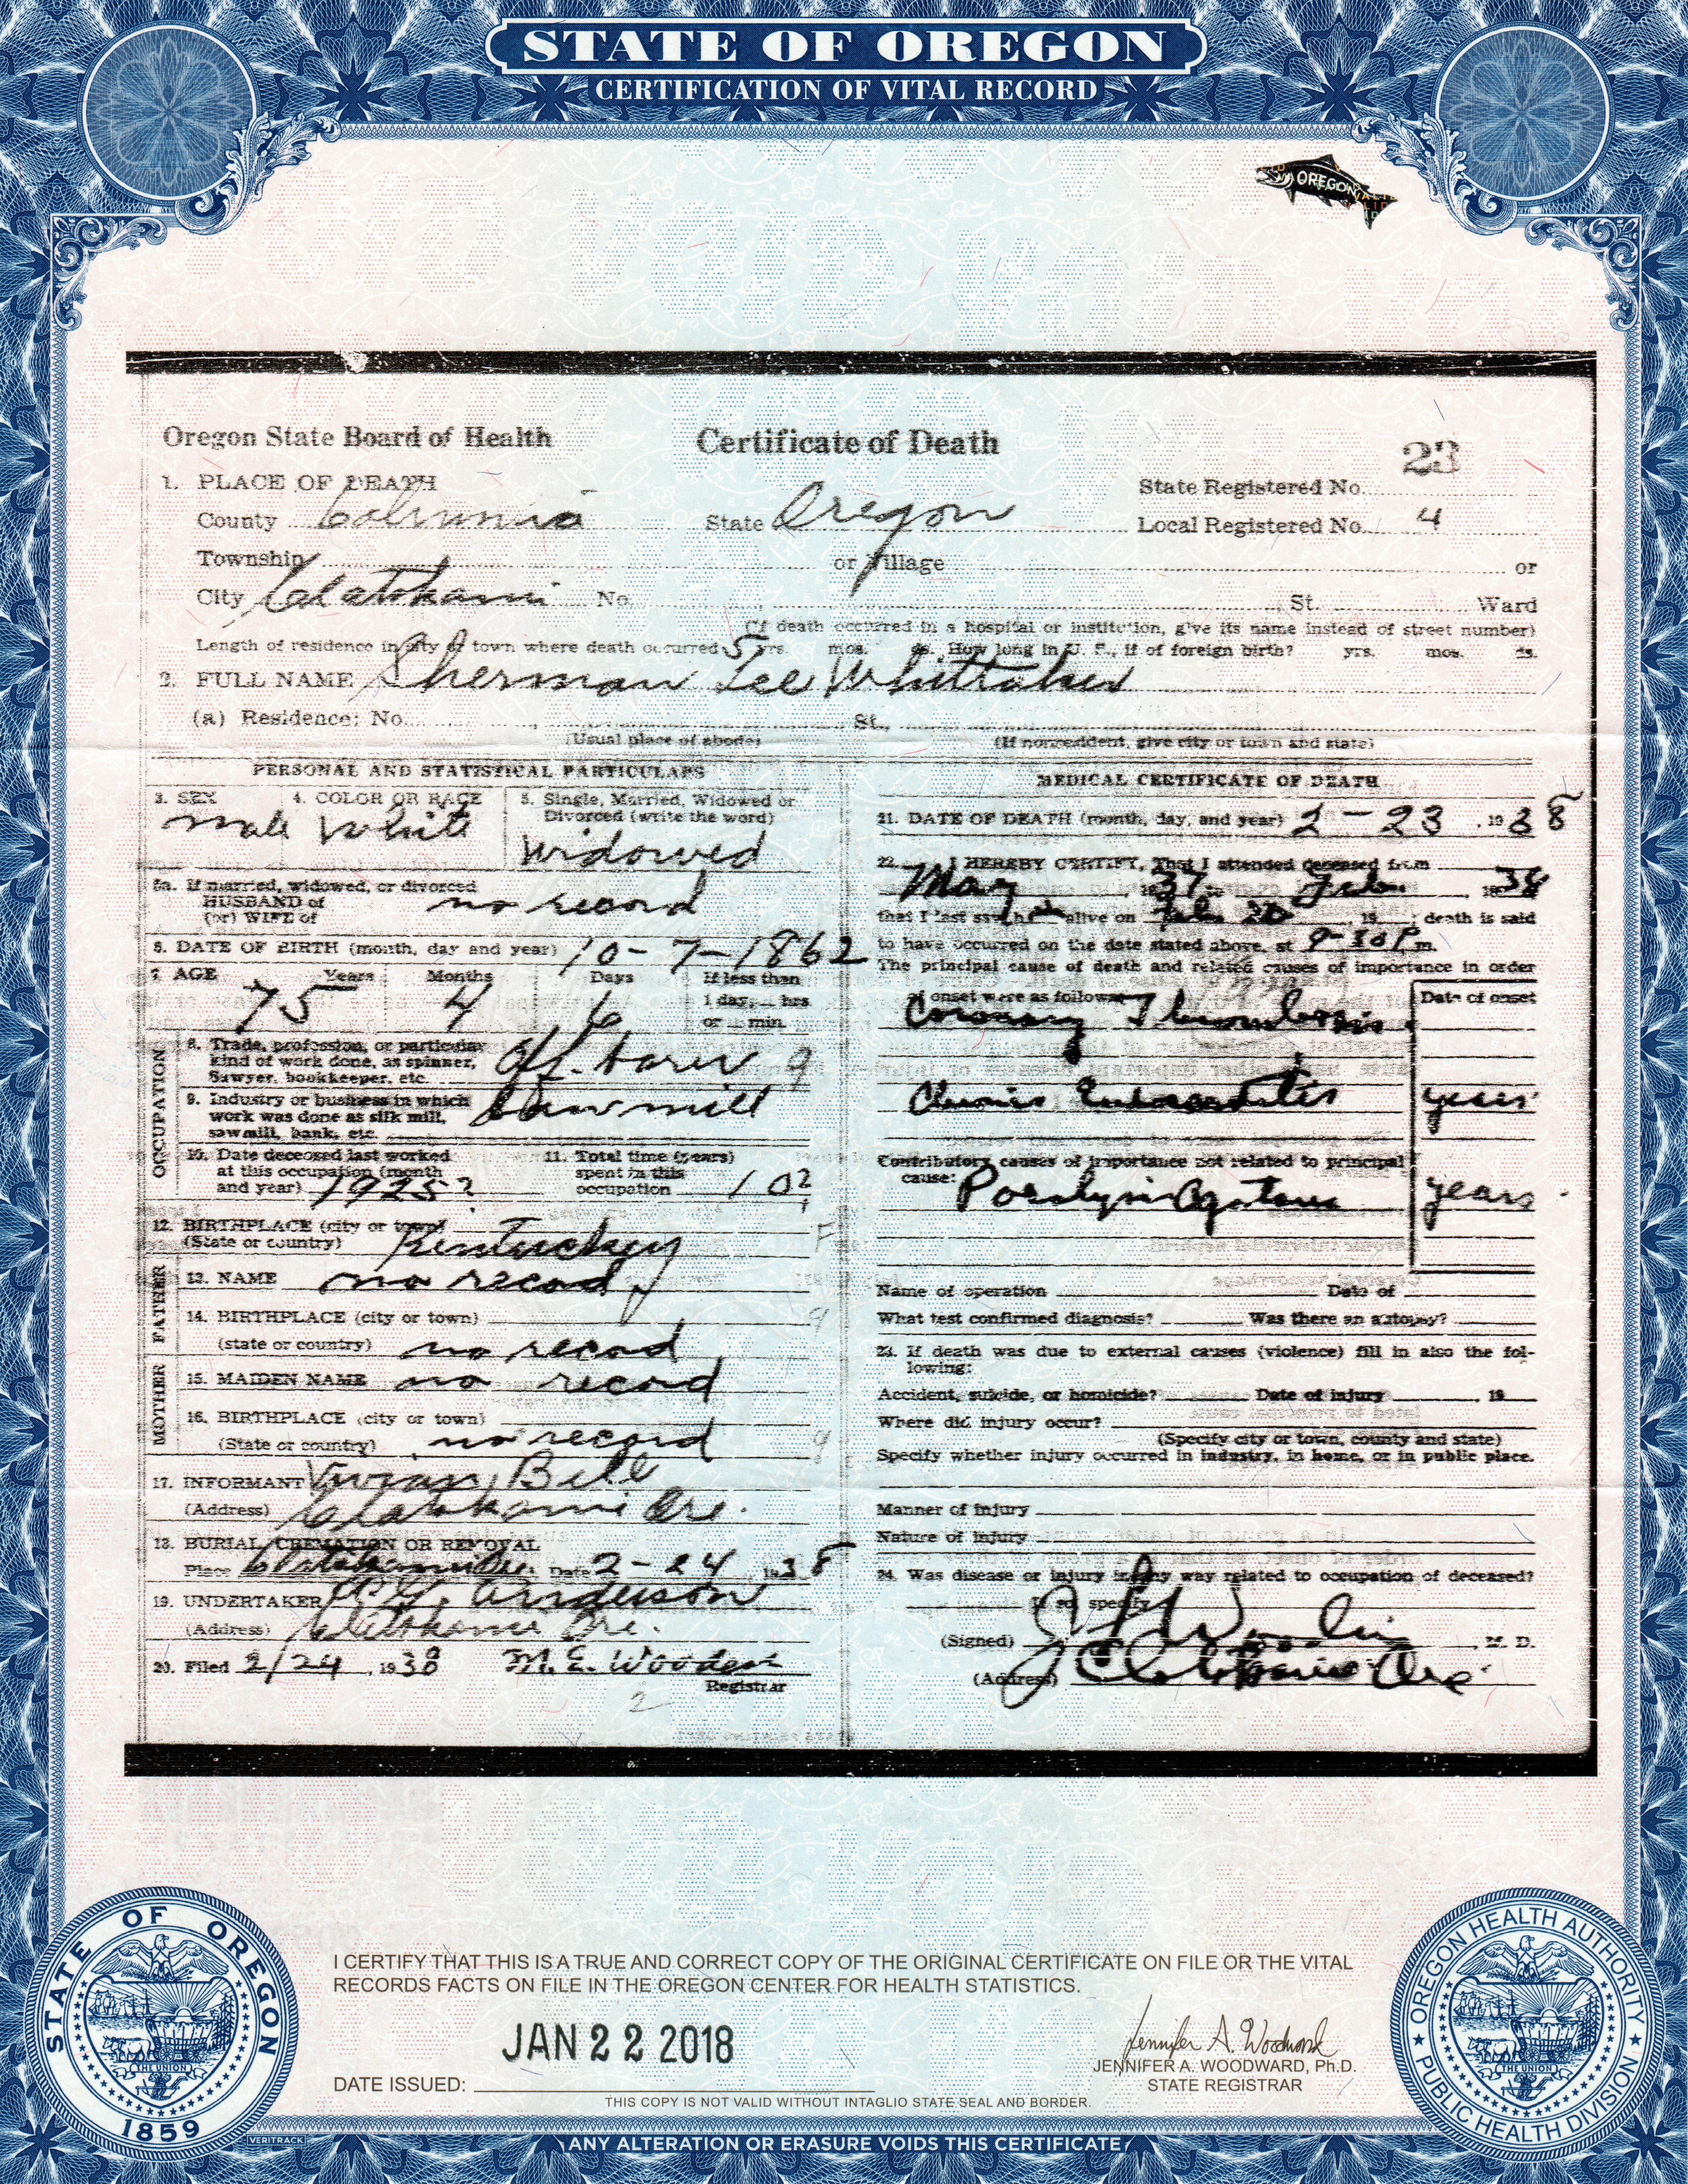 STATE OF OREGON
CERTIFICATION OF VITAL RECORD
OREGON
Oregon State Board of Health
Certificate of Death
23
1. PLACE OF DEATH
State Registered No.
County Columbia State Oregon Local Registered No. 4
Township or Village or
City Clatskanie No. St. Ward
(If death occurred in a hospital or institution, give its name instead of street number)
Length of residence in city or town where death occurred 5 yrs. mos. ds. How long in U. S., if of foreign birth? yrs. mos. ds.
2. FULL NAME Sherman Lee Whittaker
(a) Residence: No. St.,
(Usual place of abode) (If nonresident, give city or town and state)
PERSONAL AND STATISTICAL PARTICULARS
3. SEX 4. COLOR OR RACE 5. Single, Married, Widowed or
Divorced (write the word)
Male White
Widowed
5a. If married, widowed, or divorced
HUSBAND of
(or) WIFE of no record
6. DATE OF BIRTH (month, day and year) 10-7-1862
7. AGE Years Months Days If less than
75 4 16 1 day, hrs
or min.
OCCUPATION
8. Trade, profession, or particular
kind of work done, as spinner,
Sawyer, bookkeeper, etc.
9
9. Industry or business in which
work was done as silk mill,
sawmill, bank, etc. Sawmill
10. Date deceased last worked
at this occupation (month
and year) 1925?
11. Total time (years)
spent in this
occupation 10?
12. BIRTHPLACE (city or town)
(State or country) Kentucky
F
FATHER
13. NAME no record
14. BIRTHPLACE (city or town) 9
(state or country) no record
MOTHER
15. MAIDEN NAME no record
16. BIRTHPLACE (city or town)
(State or country) no record 9
17. INFORMANT Vivian Bell
(Address) Clatskanie Ore.
18. BURIAL, CREMATION OR REMOVAL
Place Clatskanie Ore. Date 2-24, 1938
19. UNDERTAKER Anderson
(Address) Clatskanie Ore.
20. Filed 2/24, 1938 M. E. Wooden
Registrar
2
MEDICAL CERTIFICATE OF DEATH
21. DATE OF DEATH (month, day, and year) 2-23, 1938
22. I HEREBY CERTIFY, That I attended deceased from
May 1937 to Feb 1938
that I last saw h alive on Feb 20, 19 ; death is said
to have occurred on the date stated above, at 9-30 P m.
The principal cause of death and related causes of importance in order
of onset were as follows: Date of onset
Coronary Thrombosis
Chronic Endocarditis years
Contributory causes of importance not related to principal
cause: Paralysis Agitans years
Name of operation Date of
What test confirmed diagnosis? Was there an autopsy?
23. If death was due to external causes (violence) fill in also the fol-
lowing:
Accident, suicide, or homicide? Date of injury , 19
Where did injury occur?
(Specify city or town, county and state)
Specify whether injury occurred in industry, in home, or in public place.
Manner of injury
Nature of injury
24. Was disease or injury in any way related to occupation of deceased?
If so, specify
(Signed) , M. D.
(Address) Clatskanie Ore.
I CERTIFY THAT THIS IS A TRUE AND CORRECT COPY OF THE ORIGINAL CERTIFICATE ON FILE OR THE VITAL
RECORDS FACTS ON FILE IN THE OREGON CENTER FOR HEALTH STATISTICS.
JAN 22 2018
DATE ISSUED:
Jennifer A. Woodward
JENNIFER A. WOODWARD, Ph.D.
STATE REGISTRAR
THIS COPY IS NOT VALID WITHOUT INTAGLIO STATE SEAL AND BORDER.
STATE OF OREGON
THE UNION
1859
OREGON HEALTH AUTHORITY
THE UNION
PUBLIC HEALTH DIVISION
VERITRACK
ANY ALTERATION OR ERASURE VOIDS THIS CERTIFICATE